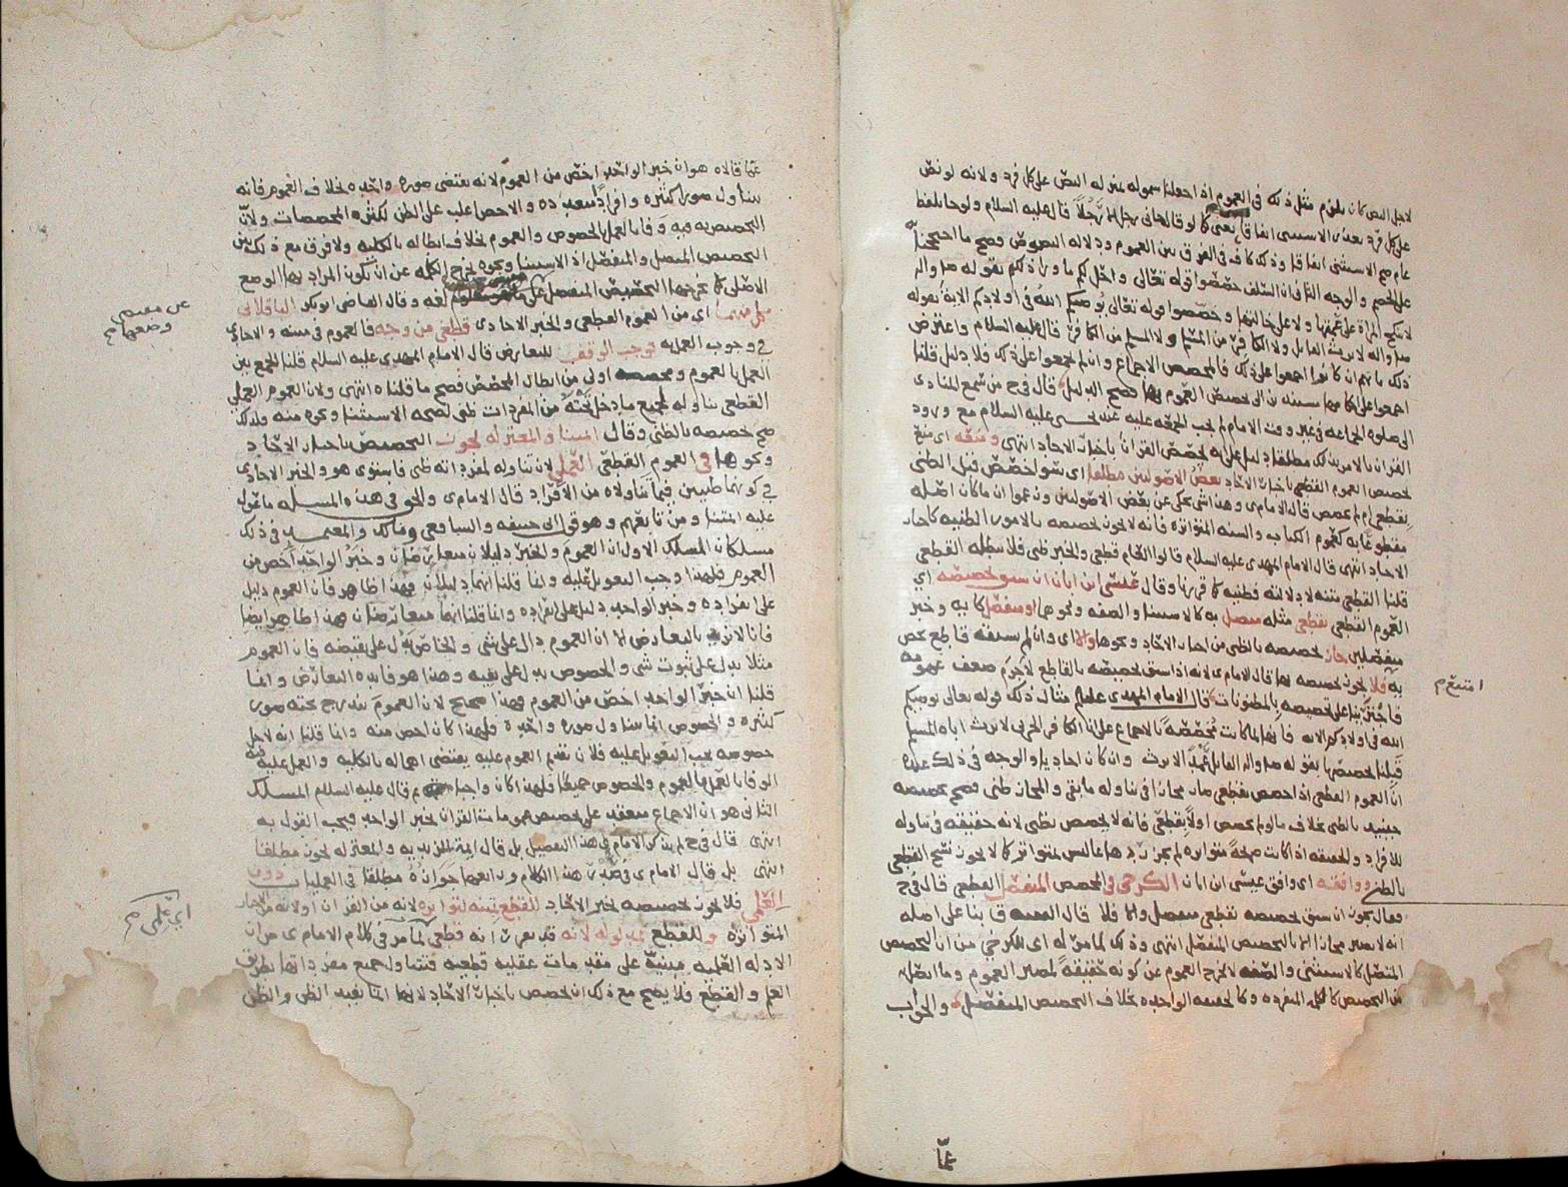 لاجل النص كان يلزم مثل ذلك في العموم اذا جعلنا شموله بمنزلة النص على كل فرد ولانه لو نص
على كل فرد بعد الاستثنى اتفاقا يعني كما لو قال جاني رجل الا رجلا قال عليه السلام ولو جا بلفظ
عام صح الاستثنى اتفاقا وذلك كاف في الفرق بين العموم ودلالة النصوص وصح ما احتججنا به
على الخصم والوجه الثاني ان السلف خصصوا قوله تعالى واحل لكم ما ورا ذلكم بقوله صلى الله واله
لا تنكح المراة على عمتها ولا على خالتها وخصصوا قوله تعالى يوصيكم الله في اولادكم الاية بقوله
صلى الله واله لا يرث القاتل ولا الكافر من المسلم ولا المسلم من الكافر قال عليه السلام واعترض
ذلك بانهم ان كانوا اجمعوا على ذلك فالمخصص الاجماع وان لم يجمعوا على ذلك فلا دليل قلنا
اجمعوا على تخصيص العموم بها فصح الدليل قال في ح من سمع المنادي
الى صلوة الجماعة في غير وقت الامام لم تجب الجمعة عليه عند يحيى عليه السلام مع ورود
القران بالامر بذلك مطلقا دليل على انه يخصص القران باخبار الاحاد انتهى ومنعه اي منع
تخصيص العموم القطعي باخبار الاحاد بعض الاصوليين مطلقا اي سوا خصص قبل الظني
بقطعي ام لم يخصص قال الامام ى وهذا شي يحكى عن بعض الاصوليين وزعموا ان ما كان اصله
مقطوعا به كعموم الكتاب والسنة المتواترة فانه لا يجوز تخصيصه بالامور الظنية كاخبار
الاحاد انتهى قال الامام المهدي عليه السلام قالوا العام قطعي والخبر ظني فلا يبطله القطعي
قلنا القطعي متنه لا دلالته فظنية كما قررنا وقال عيسى ابن ابان ان سبق تخصيصه اي
العموم القطعي بقطعي مثله متصل به كالاستثنا والصفة ونحوهما او منفصل كاية وخبر
منفصلين جاز تخصيصه بالظني من اخبار الاحاد ونحوها والا اي وان لم يسبقه قاطع يخص
به فلا يجوز تخصيصه بها قال الامام ى لانه اذا سبق تخصيصه بالقاطع لا جرم ضعف عمومه
فاجترينا على تخصيصه بالمظنونات قال الامام المهدي عليلم مثال ذلك قوله تعالى يوصيكم
الله في اولادكم الاية فانها لما كانت مخصصة بالاجماع على ان الكافر الحربي لا يرث اباه المسلم
قبلنا تخصيصها بقوله صلى الله واله القاتل عمدا لا يرث وان كان احاديا والوجه في ذلك عنده
ان العموم القطعي اذا خصص بقطعي صار مجازا في تناوله ما بقي والمجاز ظني فصح تخصيصه
حينيد بالظني بخلاف ما لو لم يخصص اولا بقطعي فانه لا يخصص بظني لانه حقيقة في تناوله
للافراد والحقيقة اذا كانت صحة متواترة لم يجز ردها بما ليس متواتر كما لا يجوز نسخ القطعي
بالظني ووافقه اي وافق عيسى ابن ابان الكرخي في المخصص المنفصل القطعي قال في ح
فقال يجوز ان سبق تخصيصه بقطعي منفصل والا فلا قال الفقيه ق بنا على اصله
انه لا يصير مجازا الا بالتخصيص المنفصل انتهى وذلك لما مر له اي للكرخي من ان التخصيص
المتصل كالاستثنى والصفة لا يخرج العموم عن كونه حقيقة لمصير العموم وما اتصل به
من التخصيص كالكلمة المنفردة وكالحقيقة الواحدة بخلاف التخصيص المنفصل والجواب
عمّا
انتهى م
عمّا قالاه هو ان خبر الواحد اخص من العموم لانه يقتضي صورة واحدة بخلاف العموم فانه
يتناول صورا كثيرة وافرادا متعددة والاخص اغلب على الظن لكثرة المخصصات ولان
التخصيص به فيه وفاء بالعمل بالخصوص والعموم بخلاف ابطاله بالكلية ولا فرق مع ذلك بين
التخصيص المتصل والمنفصل اذ الاستثنا ونحوه يخرج الكلمة عن ان تكون المراد بها الوضع
الاصلي كما يخرجها التخصيص المنفصل لغة وقال القاضي ابو بكر الباقلاني
كل منهما اي من العموم القطعي والخبر الاحادي قطعي من وجه فالعموم في متنه والاحادي
في وجوب العمل به توجب الوقف للتعارض قال الامام المهدي عليه السلام قلنا الجمع بين
العمل بالعموم ومخصصه اولى من ابطال المخصص فصح ما قلناه انتهى ولان العموم العملي
القطعي تناوله لجميع ما دخل تحته من المفردات ظني لصحة الاستثنا ونحوه منه ولذلك
صح تخصيصه بالظني وقال ايمتنا والمعتزلة يجوز التخصيص باخبار الاحاد
ونحوها في العموم القطعي العملي لان تناوله لمفرداته ظني فاستوى هو والخبر الاحادي
في كونهما ظنيين فيما تناولاه من الافراد قال الامام ى والحق في هذه المسئلة ما عول
عليه ايمتنا ومن تابعهم وهو قول ابي حنيفة والشافعي ومالك والمعتمد في ذلك
مسلكان المسلك الاول ان العموم والخبر دليلان متعارضان وخبر الواحد اخص من
العموم فلهذا وجب التعويل عليه وانما قلنا انهما دليلان فهذا ظاهر فان العموم دليل
على انفراده وخبر الواحد دليل على انفراده وانما قلنا انهما متعارضان فهذا ظاهر ايضا
فانا لا نريد بالتعارض الا ان العموم دال على شي والخاص يدل على نقيضه فان العموم
مثلا يدل على ثبوت شي والخصوص يدل على نفيه وهذا هو فايدة التعارض وانما
قلنا ان خبر الواحد اخص من العموم فهذا صحيح لان العموم يندرج تحته صور
كثيرة والخصوص انما يتناول صورة واحدة فلهذا كان اخص منه وانما قلنا انه لاجل
خصوصه يجب التعويل عليه فلان تقديم العموم عليه يقتضي اهماله بالكلية والعمل عليه فيه
الوفا بالعمل بالعموم والخصوص جميعا فلهذا كان واجبا ثم قال عليه السلام المسلك
الثاني هو ان الاجماع منعقد على تخصيص عمومات القران بخبر الواحد فيجب القول به
انتهى قال في ح لم يذكر الامام في هذا التفصيل بل قال ايمة الزيدية والمعتزلة يجوز مطلقا
انتهى بل قال الامام ى في بعض هذا الكلام ورابعها جوازه مطلقا في العمليات دون
العلمي فلا يجوز تخصيصه بخبر الاحاد للقطع بمتنه لتواتره لانه من القران او لانه من الاخبار
المتواترة وللقطع بمدلوله لانه قد تعين انه قطعي لما مر في كلام الامام ى من ان
الادلة العلمية مبنية على مقدمات عقلية قطعية فتتناول جميع مفرداتها بطريق
العلم والقطع فلا يصح مع ذلك ان تخصص باخبار الاحاد لانها انما تفيد الظن والظن
اي علمي م